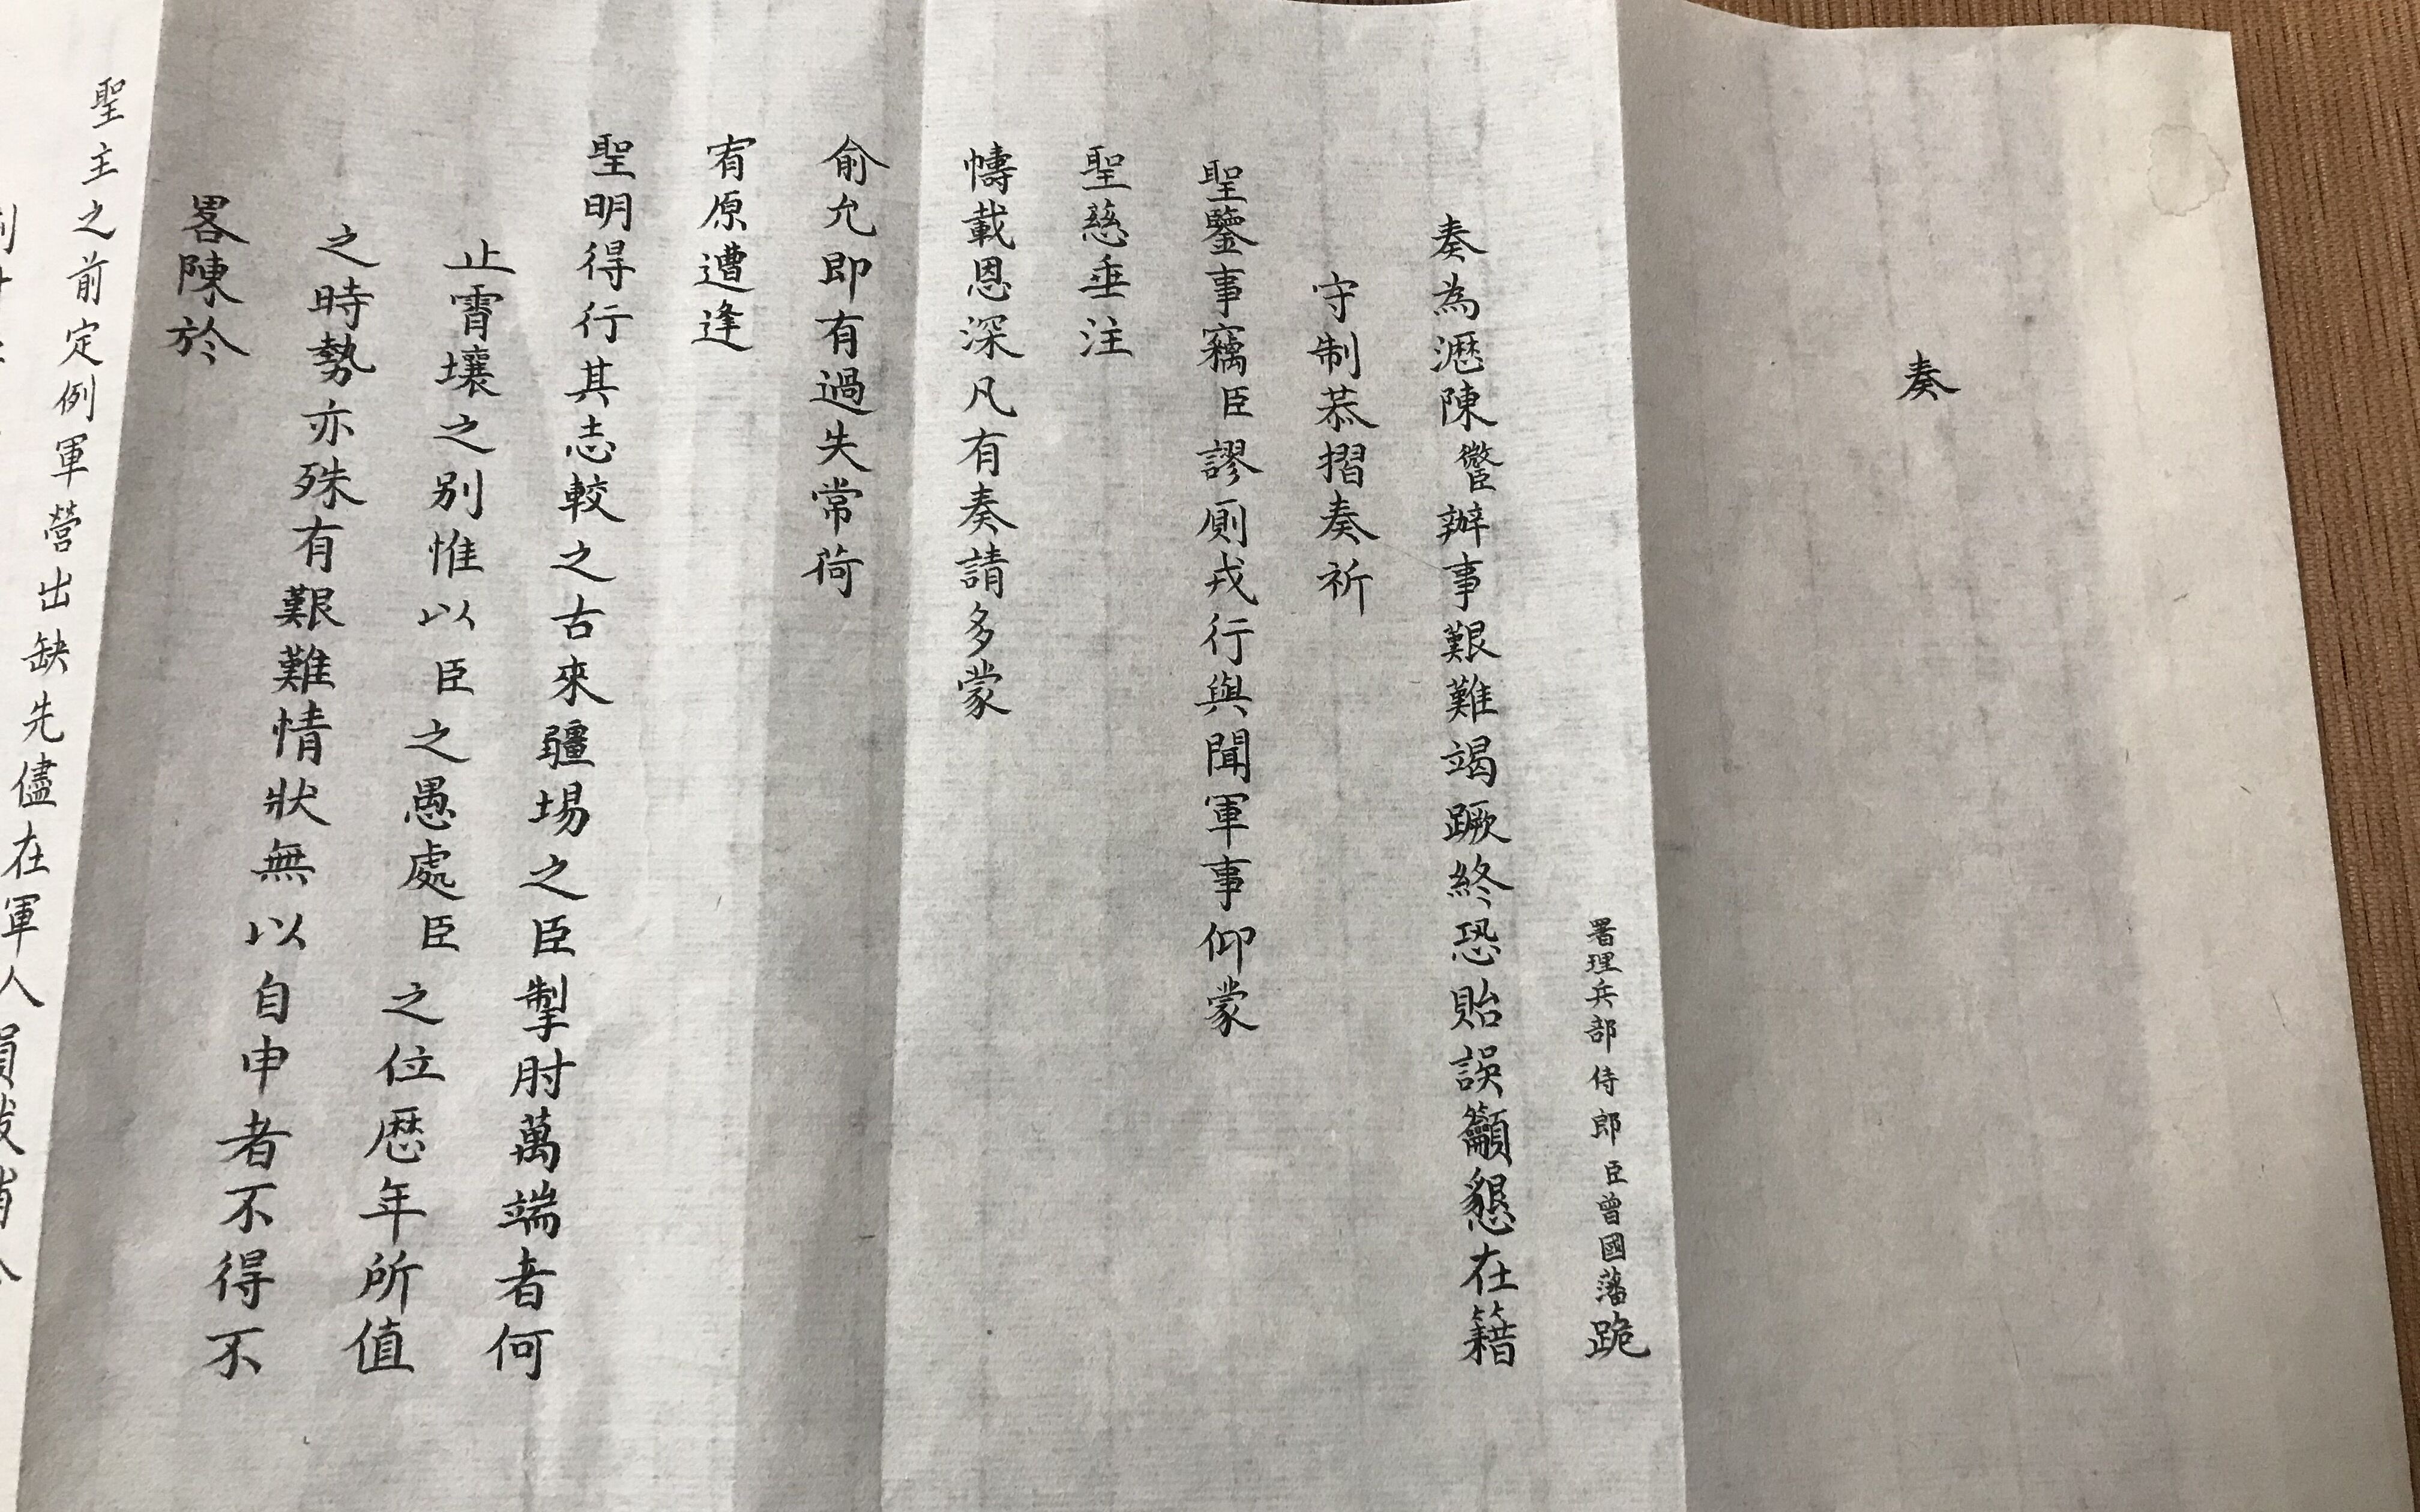 奏
署理兵部侍郎臣曾國藩跪
奏為瀝陳微臣辦事艱難竭蹶終恐貽誤籲懇在籍
守制恭摺奏祈
聖鑒事竊臣謬厠戎行與聞軍事仰蒙
聖慈垂注
幬載恩深凡有奏請多蒙
俞允即有過失常荷
宥原遭逢
聖明得行其志較之古來疆埸之臣掣肘萬端者何
止霄壤之別惟以臣之愚處臣之位厯年所值
之時勢亦殊有艱難情狀無以自申者不得不
畧陳於
聖主之前定例軍營出缺先儘在軍人員